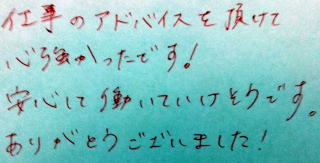 仕事のアドバイスを頂けて
心強かったです!
安心して働いていけそうです。
ありがとうございました!